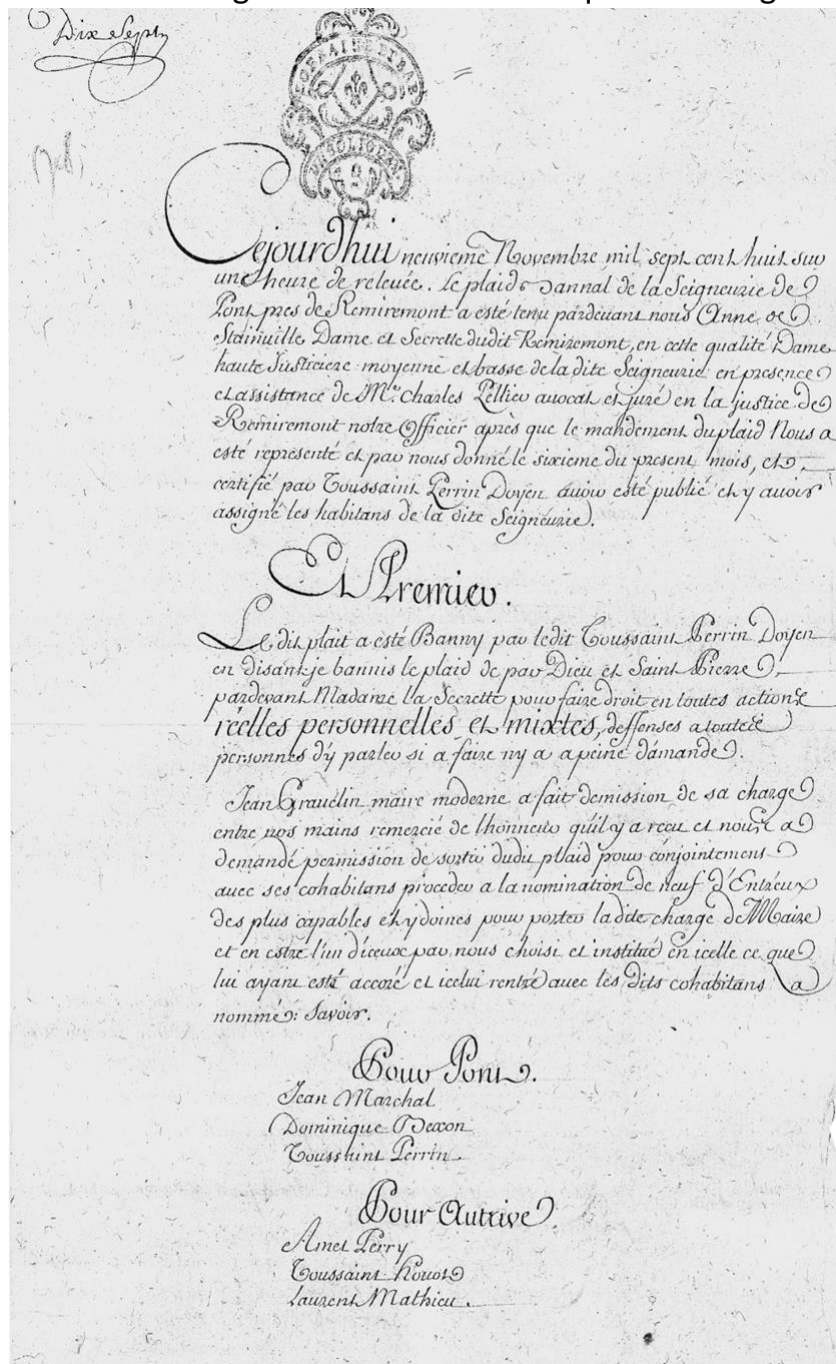 Dix Sept
LORRAINE ET BAR
Cejourd'hui neuvieme Novembre mil sept cent huit sur
une heure de relevée. Le plaids annal de la Seigneurie de
Pont pres de Remiremont a esté tenu pardevant nous Anne de
Stainville Dame et Secrette dudit Remiremont, en cette qualité Dame
haute Justiciere moyenne et basse de la dite Seigneurie en presence
et assistance de Mr. Charles Pellier avocat et juré en la justice de
Remiremont notre Officier après que le mandement du plaid Nous a
esté représenté et par nous donné le sixieme du present mois, et
certifié par Toussaint Perrin Doyen avoir esté publié et y avoir
assigné les habitans de la dite Seigneurie.
Et Premier.
Le dit plait a esté Banny par ledit Toussaint Perrin Doyen
en disant je bannis le plaid de par Dieu et Saint Pierre
pardevant Madame la Secrette pour faire droit en toutes actions
réelles personnelles et mixtes, deffenses a toutes
personnes d'y parler si a faire ny a a peine d'amande.
Jean Gravelin maire moderne a fait demission de sa charge
entre nos mains remercié de lhonneur qu'il y a reçu et nous a
demandé permission de sortir dudit plaid pour conjointement
avec ses cohabitans proceder a la nomination de neuf d'Entreux
des plus capables et ydoines pour porter la dite charge de Maire
et en estre l'un d'iceux par nous choisi et institué en icelle ce que
lui ayant esté accoré et icelui rentré avec les dits cohabitans a
nommé: Savoir.
Pour Pont.
Jean Marchal
Dominique Bexon
Toussaint Perrin
Pour Autrive.
Amet Perry
Toussaint Houot
Laurent Mathieu.